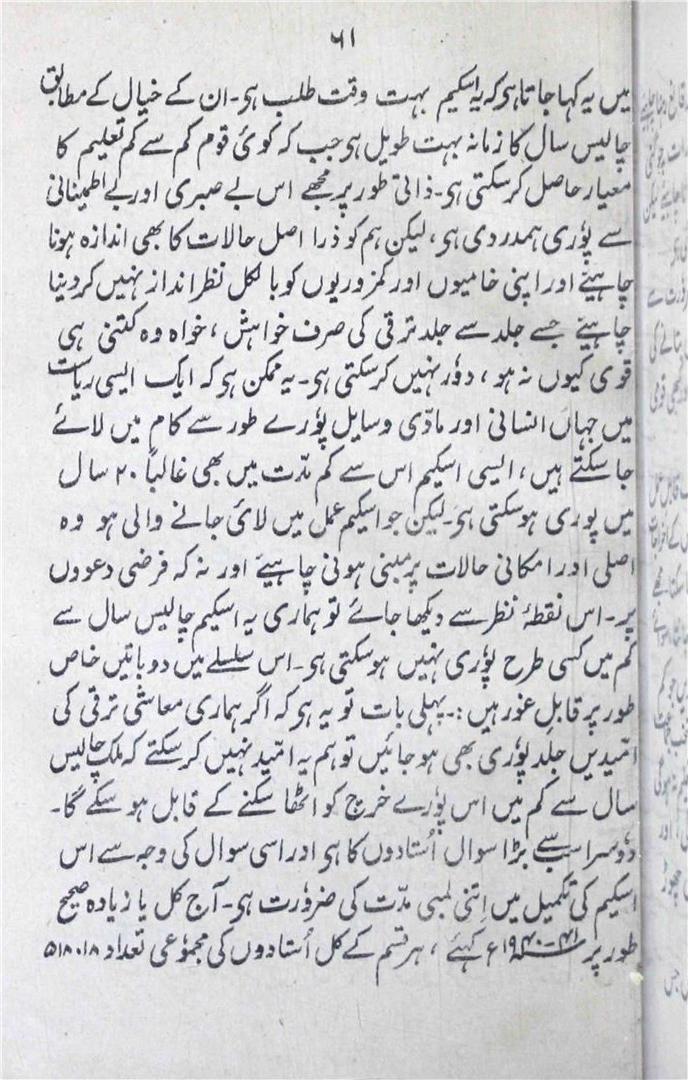 ۶۱
میں یہ کہا جاتا ہو کہ یہ اسکیم بہت وقت طلب ہو۔ ان کے خیال کے مطابق
چالیس سال کا زمانہ بہت طویل ہو جب کہ کوئی قوم کم سے کم تعلیم کا
معیار حاصل کرسکتی ہو۔ ذاتی طور پر مجھے اس بے صبری اور بے اطمینانی
سے پوٗری ہمدردی ہو، لیکن ہم کو ذرا اصل حالات کا بھی اندازہ ہونا
چاہیئے اور اپنی خامیوں اور کمزوریوں کو بالکل نظر انداز نہیں کردینا
چاہیئے جسے جلد سے جلد ترقی کی صرف خواہش، خواہ وہ کتنی ہی
قوی کیوں نہ ہو، دوٗر نہیں کرسکتی ہو۔ یہ ممکن ہو کہ ایک ایسی ریاست
میں جہاں انسانی اور مادّی وسایل پوٗرے طور سے کام میں لائے
جاسکتے ہیں، ایسی اسکیم اس سے کم مدّت میں بھی غالباً ۲۰ سال
میں پوری ہوسکتی ہو۔ لیکن جو اسکیم عمل میں لائی جانے والی ہو وہ
اصلی اور امکانی حالات پر مبنی ہونی چاہیئے اور نہ کہ فرضی دعووں
پر۔ اس نقطۂ نظر سے دیکھا جائے تو ہماری یہ اسکیم چالیس سال سے
کم میں کسی طرح پوٗری نہیں ہوسکتی ہو۔ اس سلسلے میں دو باتیں خاص
طور پر قابلِ غور ہیں:۔ پہلی بات تو یہ ہو کہ اگر ہماری معاشی ترقی کی
امّیدیں جلد پوٗری بھی ہو جائیں تو ہم یہ امّید نہیں کرسکتے کہ ملک چالیس
سال سے کم میں اس پوٗرے خرچ کو اٹھا سکنے کے قابل ہو سکے گا۔
دوٗسرا سب سے بڑا سوال اُستادوں کا ہو اور اسی سوال کی وجہ سے اس
اسکیم کی تکمیل میں اِتنی لمبی مدّت کی ضروٗرت ہو۔ آج کل یا زیادہ صحیح
طور پر ۴۱-۱۹۴۰ء کہئے، ہر قسم کے کل اُستادوں کی مجموٗعی تعداد ۵۱۸۰۱۸